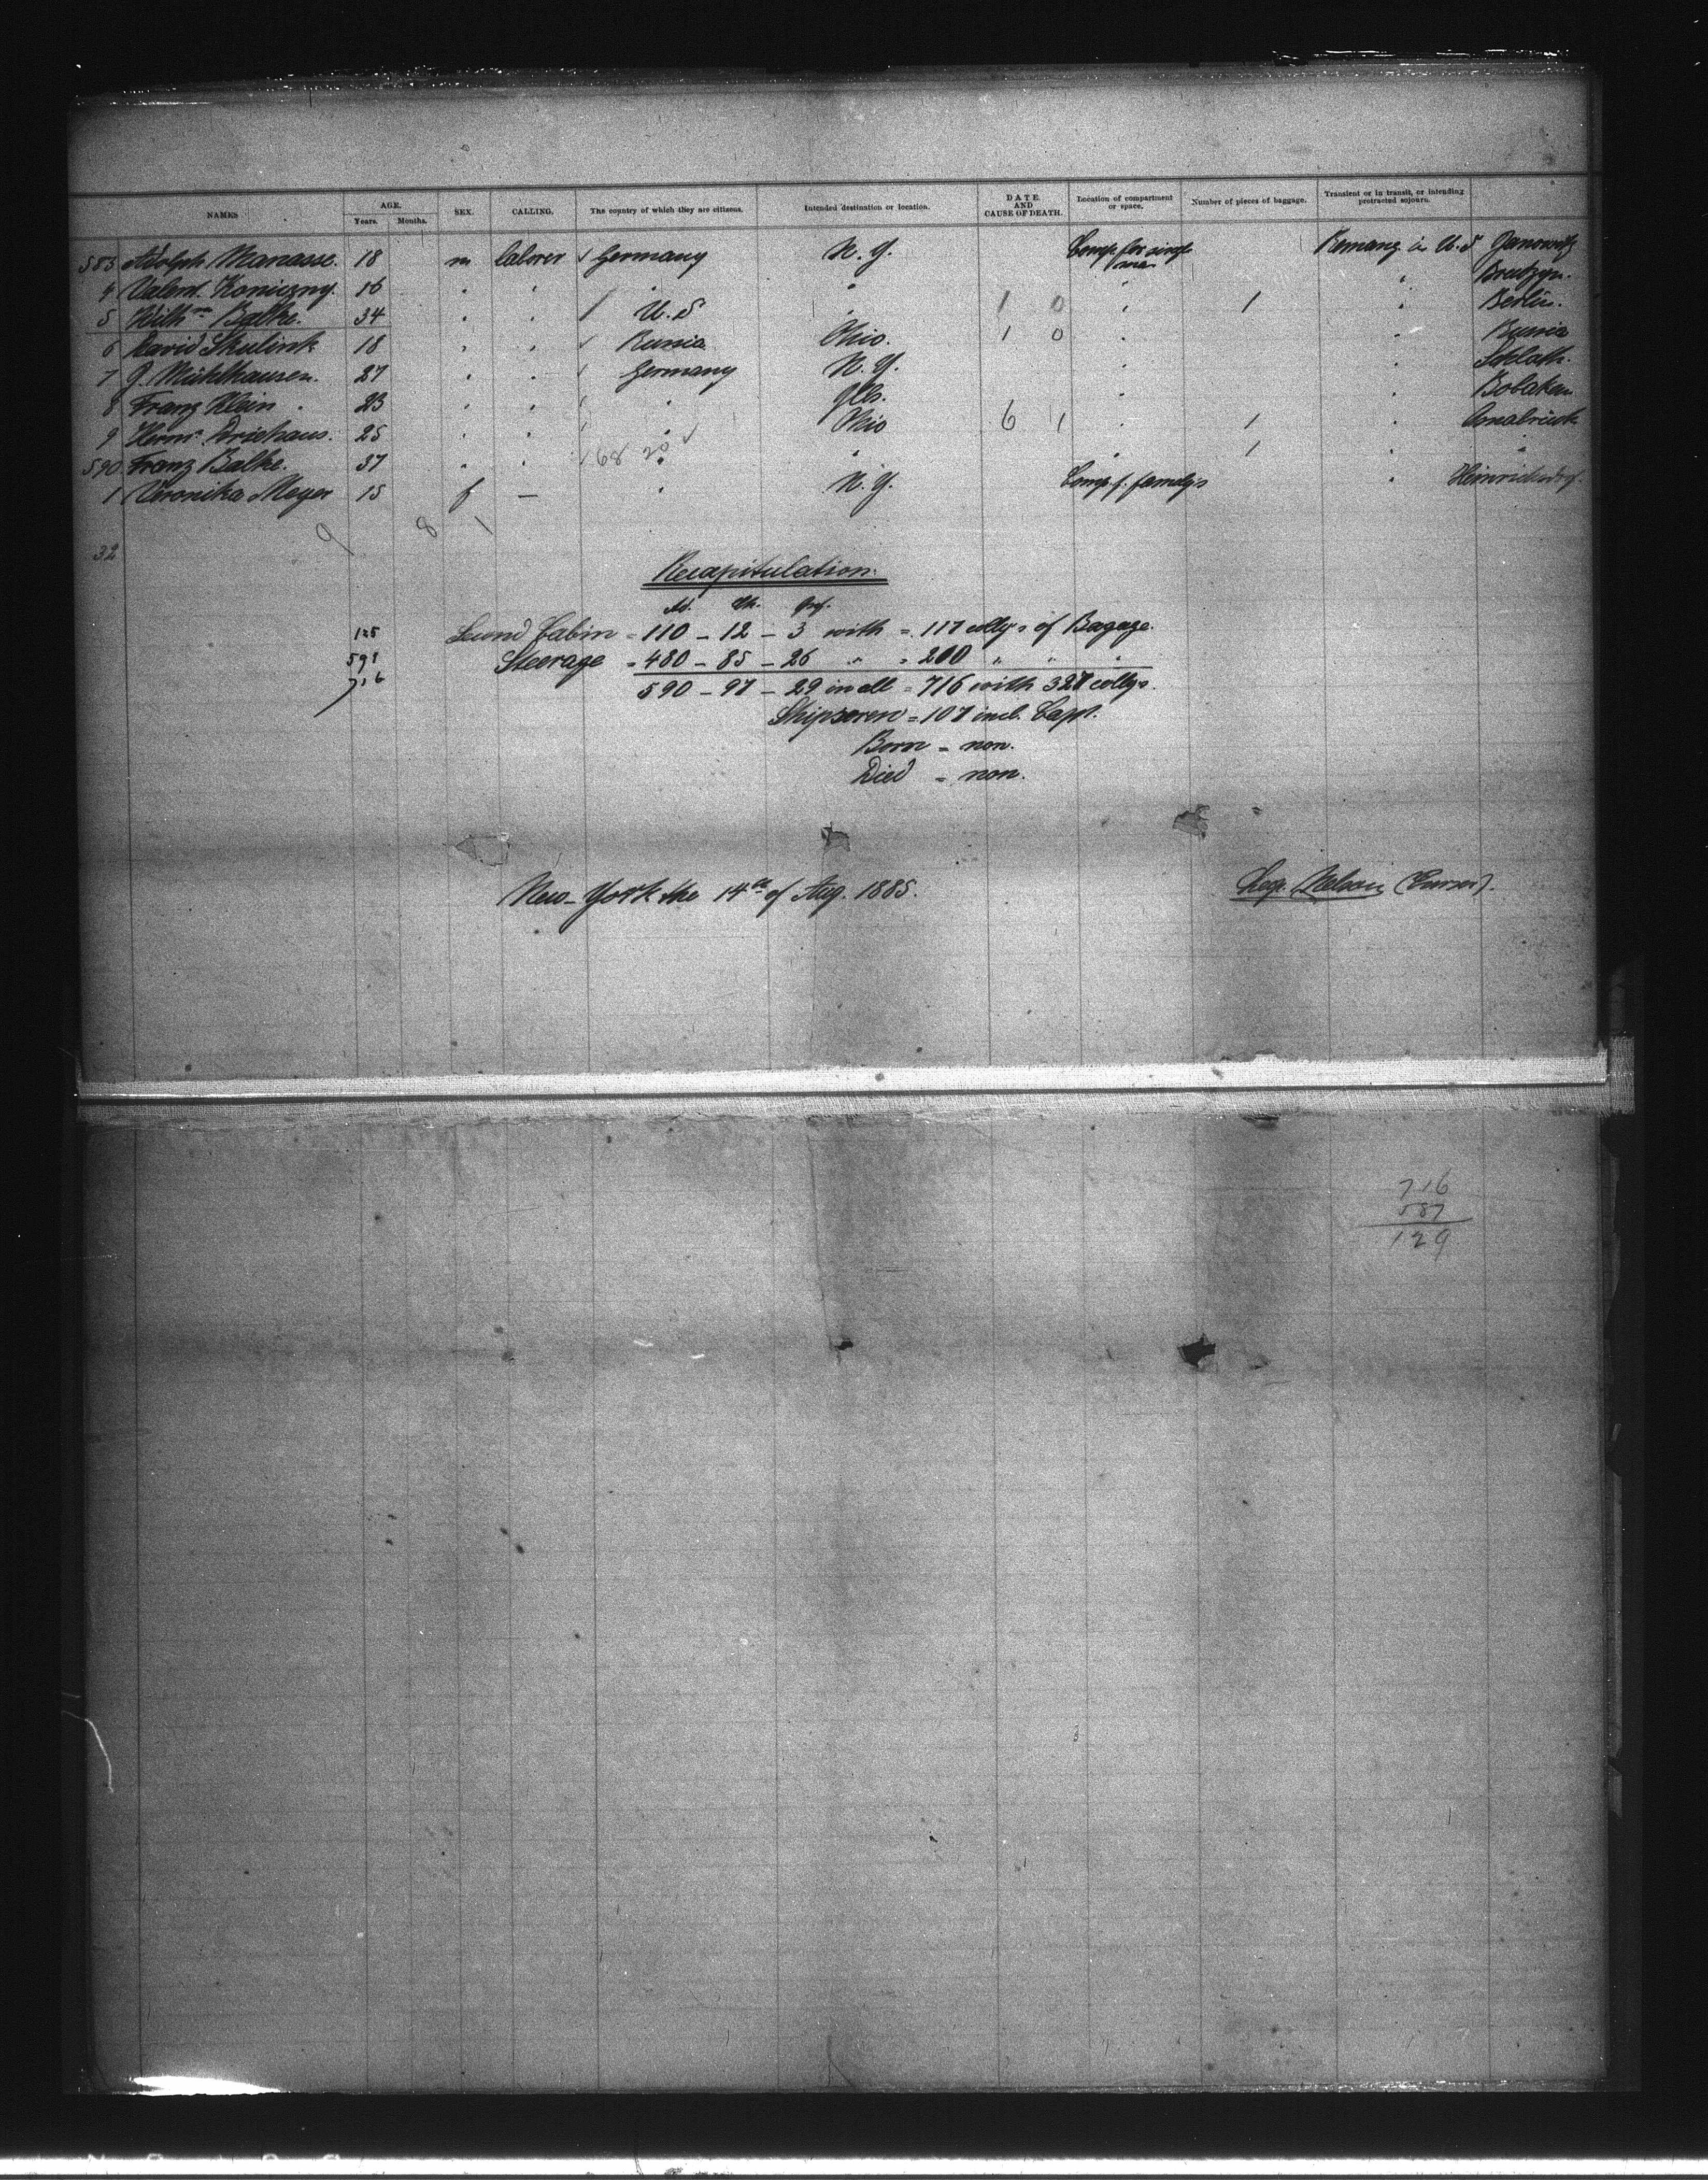 NAMES AGE. Years. Months. SEX. CALLING. The country of which they are citizens. Intended destination or location. DATE AND CAUSE OF DEATH. Location of compartment or space. Number of pieces of baggage. Transient or in transit, or intending protracted sojourn.
583 Adolph Manasse. 18 m laborer Germany N.Y. Comp. for single men Remang in U.S Janowitz
4 Valent. Koniczny. 16 " " " " " "
5 Wilhm Balke. 34 " " U.S " 1 0 " 1 " Berlin.
6 David Skulink 18 " " Russia Ohio. 1 0 " " Russia
7 J. Mühlhausen. 27 " " Germany N.Y. " " Schlath.
8 Franz Klein. 23 " " " Ills. " "
9 Herm. 25 " " " Ohio 6 1 " 1 " Osnabrück
590 Franz Balke. 37 " " 68 20 " " " 1 " "
1 Veronika Meyer 15 f — " N.Y. Comp. f. family's " Heinrichsdorf.
9 8 1
32
Recapitulation.
Ad. Ch. Inf.
125 Second Cabin = 110 – 12 – 3 with = 117 colly's of Bagage.
591 Steerage = 480 – 85 – 26 " = 210 " " "
716 590 – 97 – 29 in all = 716 with 327 colly's.
Shipscrew = 107 incl. Capt.
Born = non.
Died = non.
New-York the 14th of Aug. 1885.
Nelson
716
587
129